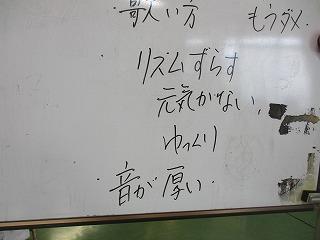 ・歌い方　もうダメ.
リズムずらす
元気がない、
ゆっくり
・音が厚い.